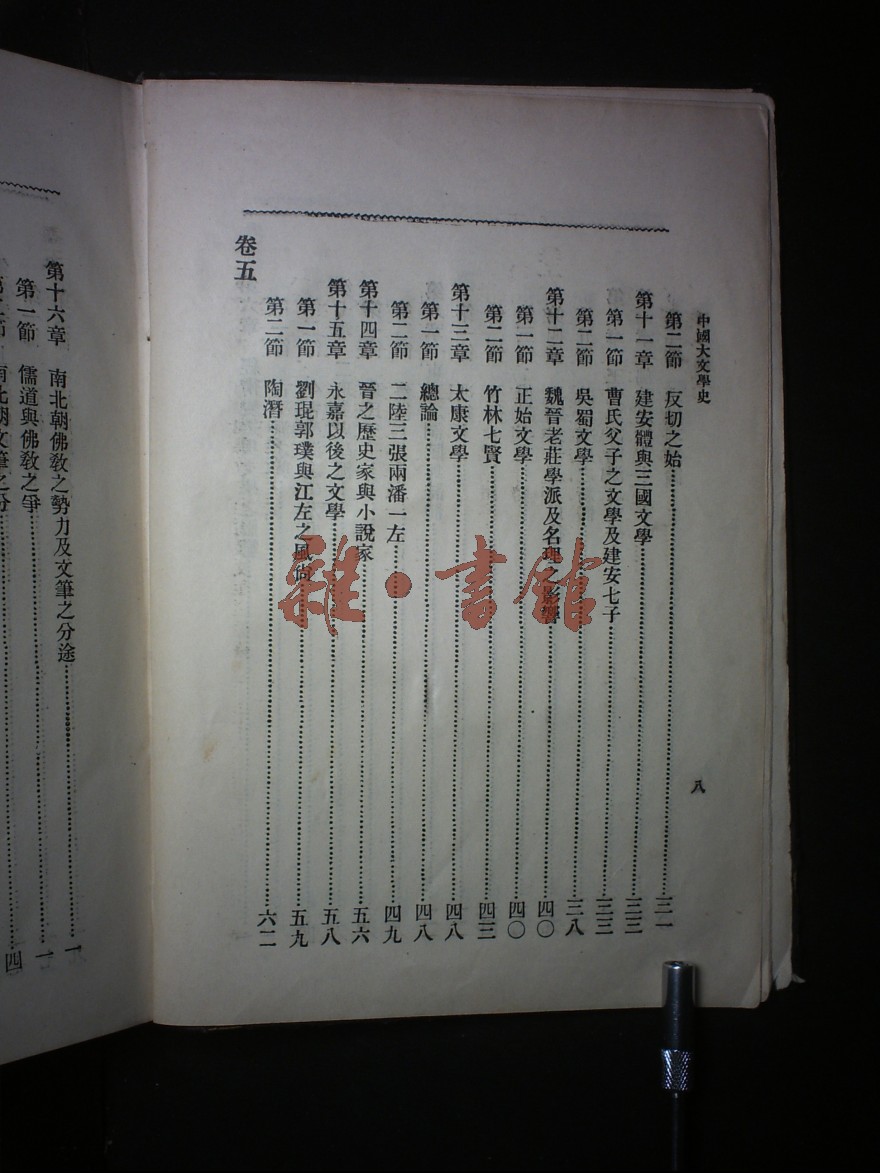 中國大文學史
八
第二節 反切之始 三一
第十一章 建安體與三國文學 三三
第一節 曹氏父子之文學及建安七子 三三
第二節 吳蜀文學 三八
第十二章 魏晉老莊學派及名理之影響 四〇
第一節 正始文學 四〇
第二節 竹林七賢 四三
第十三章 太康文學 四八
第一節 總論 四八
第二節 二陸三張兩潘一左 四九
第十四章 晉之歷史家與小說家 五六
第十五章 永嘉以後之文學 五八
第一節 劉琨郭璞與江左之風尚 五九
第二節 陶潛 六二
卷五
第十六章 南北朝佛教之勢力及文筆之分途 一
第一節 儒道與佛教之爭 一
第二節 南北朝文筆之分 四
雜·書館